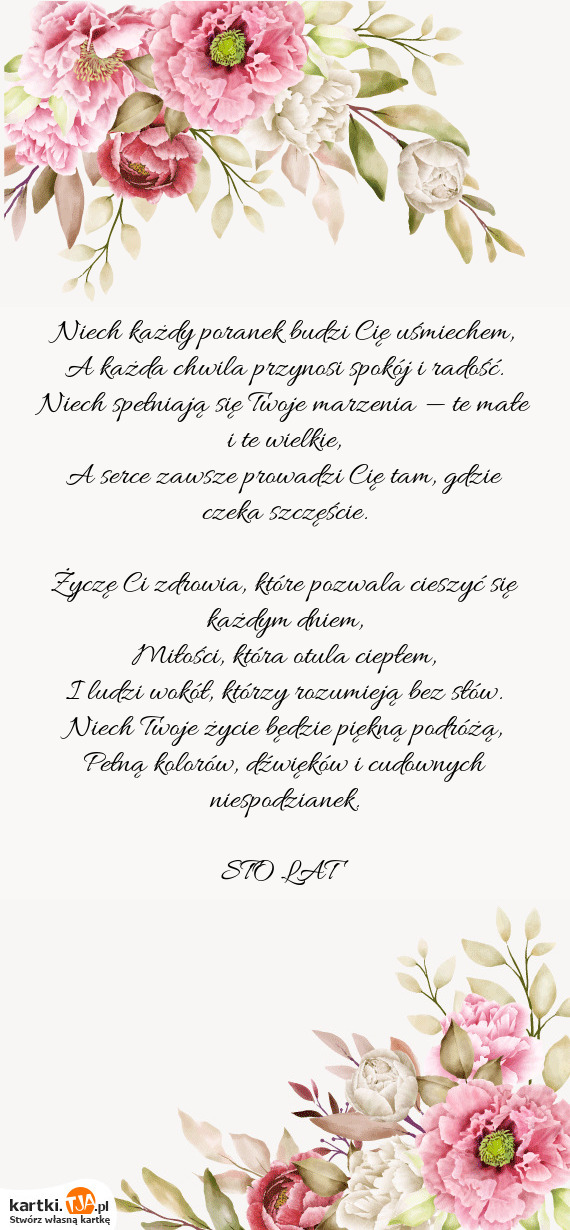 Niech każdy poranek budzi Cię uśmiechem,
A każda chwila przynosi spokój i radość.
Niech spełniają się Twoje marzenia — te małe
i te wielkie,
A serce zawsze prowadzi Cię tam, gdzie
czeka szczęście.

Życzę Ci zdrowia, które pozwala cieszyć się
każdym dniem,
Miłości, która otula ciepłem,
I ludzi wokół, którzy rozumieją bez słów.
Niech Twoje życie będzie piękną podróżą,
Pełną kolorów, dźwięków i cudownych
niespodzianek.

STO LAT

kartki.TJA.pl
Stwórz własną kartkę